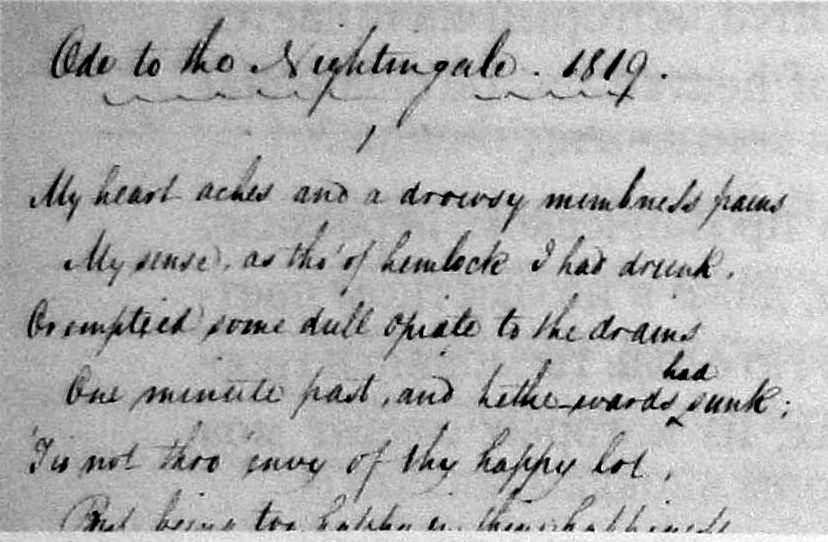 Ode to the Nightingale. 1819.
1
My heart aches and a drowsy numbness pains
My sense, as tho' of hemlock I had drunk.
Or emptied some dull opiate to the drains
One minute past, and lethe-wards had sunk;
'Tis not thro' envy of thy happy lot,
But being too happy in thine happiness